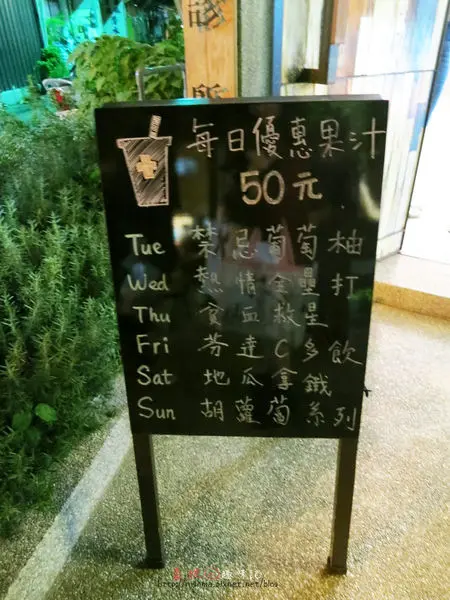 診所
每日優惠果汁
50元
Tue 禁忌葡萄柚
Wed 熱情全壘打
Thu 貧血救星
Fri 芬達C多飲
Sat 地瓜拿鐵
Sun 胡蘿蔔系列